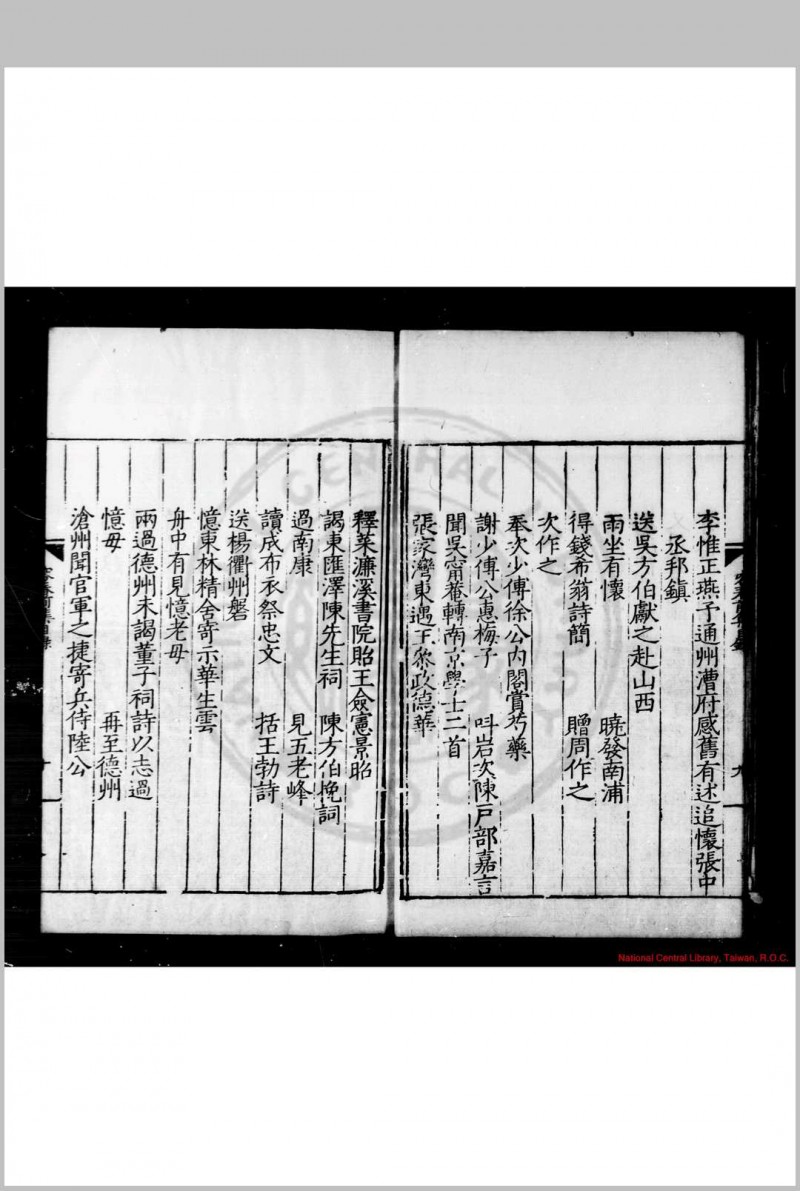 李惟正燕予通州漕府感舊有述追懷張中
丞邦鎮
送吳方伯獻之赴山西
雨坐有懷 曉發南浦
得錢希翁詩簡 贈周作之
次作之
奉次少傅徐公內閣賞芍藥
謝少傅公惠梅子 呌岩次陳戶部嘉言
聞吳甯菴轉南京學士二首
張家灣東遇王叅政德華
釋菜濂溪書院貽王僉憲景昭
謁東匯澤陳先生祠 陳方伯挽詞
過南康 見五老峰
讀成布衣祭忠文 括王勃詩
送楊衢州磐
憶東林精舍寄示華生雲
舟中有見憶老母
兩過德州未謁董子祠詩以志過
憶母 再至德州
滄州聞官軍之捷寄兵侍陸公
National Central Library, Taiwan, R.O.C.